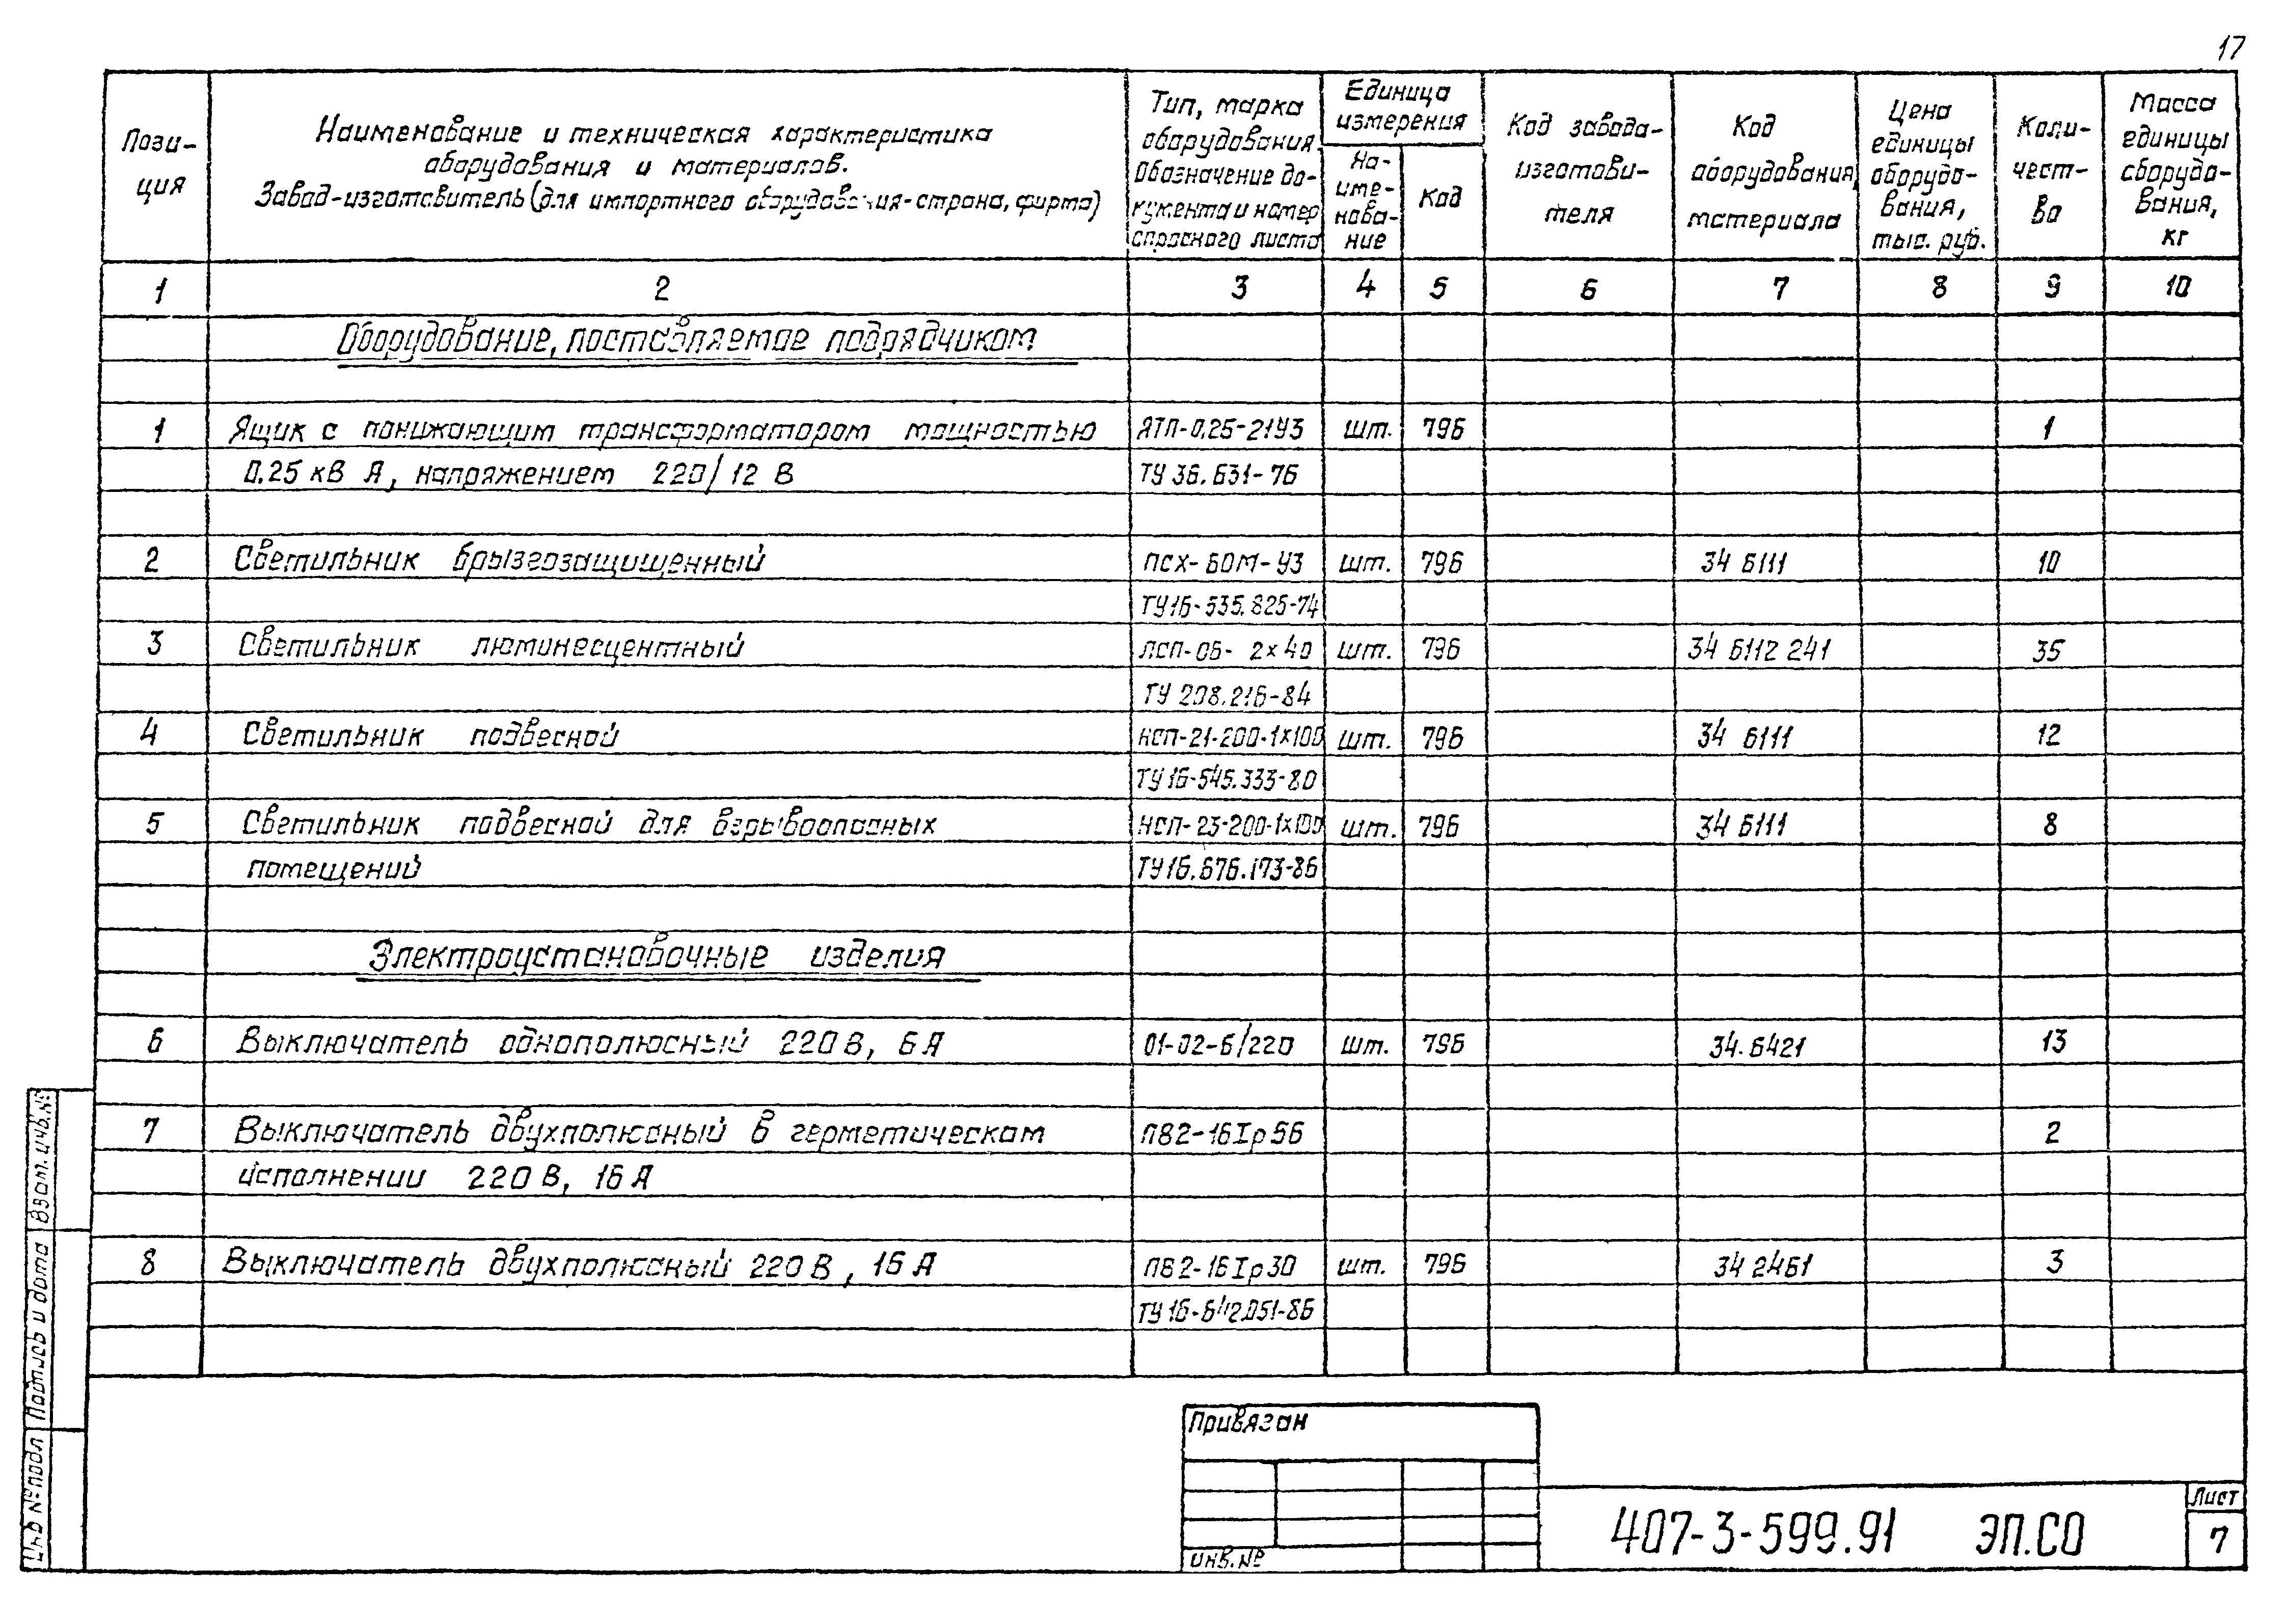 17
Пози-
ция
Наименование и техническая характеристика
оборудования и материалов.
Завод-изготовитель (для импортного оборудования-страна, фирма)
Тип, марка
оборудования.
Обозначение до-
кумента и номер
опросного листа
Единица
измерения
На-
име-
нова-
ние
Код
Код завода-
изготови-
теля
Код
оборудования,
материала
Цена
единицы
оборудо-
вания,
тыс. руб.
Коли-
чест-
во
Масса
единицы
оборудо-
вания,
кг
1 2 3 4 5 6 7 8 9 10
Оборудование, поставляемое подрядчиком
1 Ящик с понижающим трансформатором мощностью ЯТП-0.25-21У3 шт. 796 1
0.25 кВ А, напряжением 220/12 В ТУ 36.631-76
2 Светильник брызгозащищенный ПСХ-60М-У3 шт. 796 34 6111 10
ТУ16-535.825-74
3 Светильник люминесцентный ЛСП-06- 2×40 шт. 796 34 6112 241 35
ТУ 208.216-84
4 Светильник подвесной НСП-21-200-1×100 шт. 796 34 6111 12
ТУ16-545.333-80
5 Светильник подвесной для взрывоопасных НСП-23-200-1×100 шт. 796 34 6111 8
помещений ТУ16.676.173-86
Электроустановочные изделия
6 Выключатель однополюсный 220 В, 6 А 01-02-6/220 шт. 796 34.6421 13
7 Выключатель двухполюсный в герметическом ПВ2-16Iр56 2
исполнении 220 В, 16 А
8 Выключатель двухполюсный 220 В, 16 А ПВ2-16Iр30 шт. 796 34 2461 3
ТУ16-642.051-86
Привязан
Инв. №
407-3-599.91 ЭП.СО
Лист
7
Взам. инв. №
Подпись и дата
Инв № подл